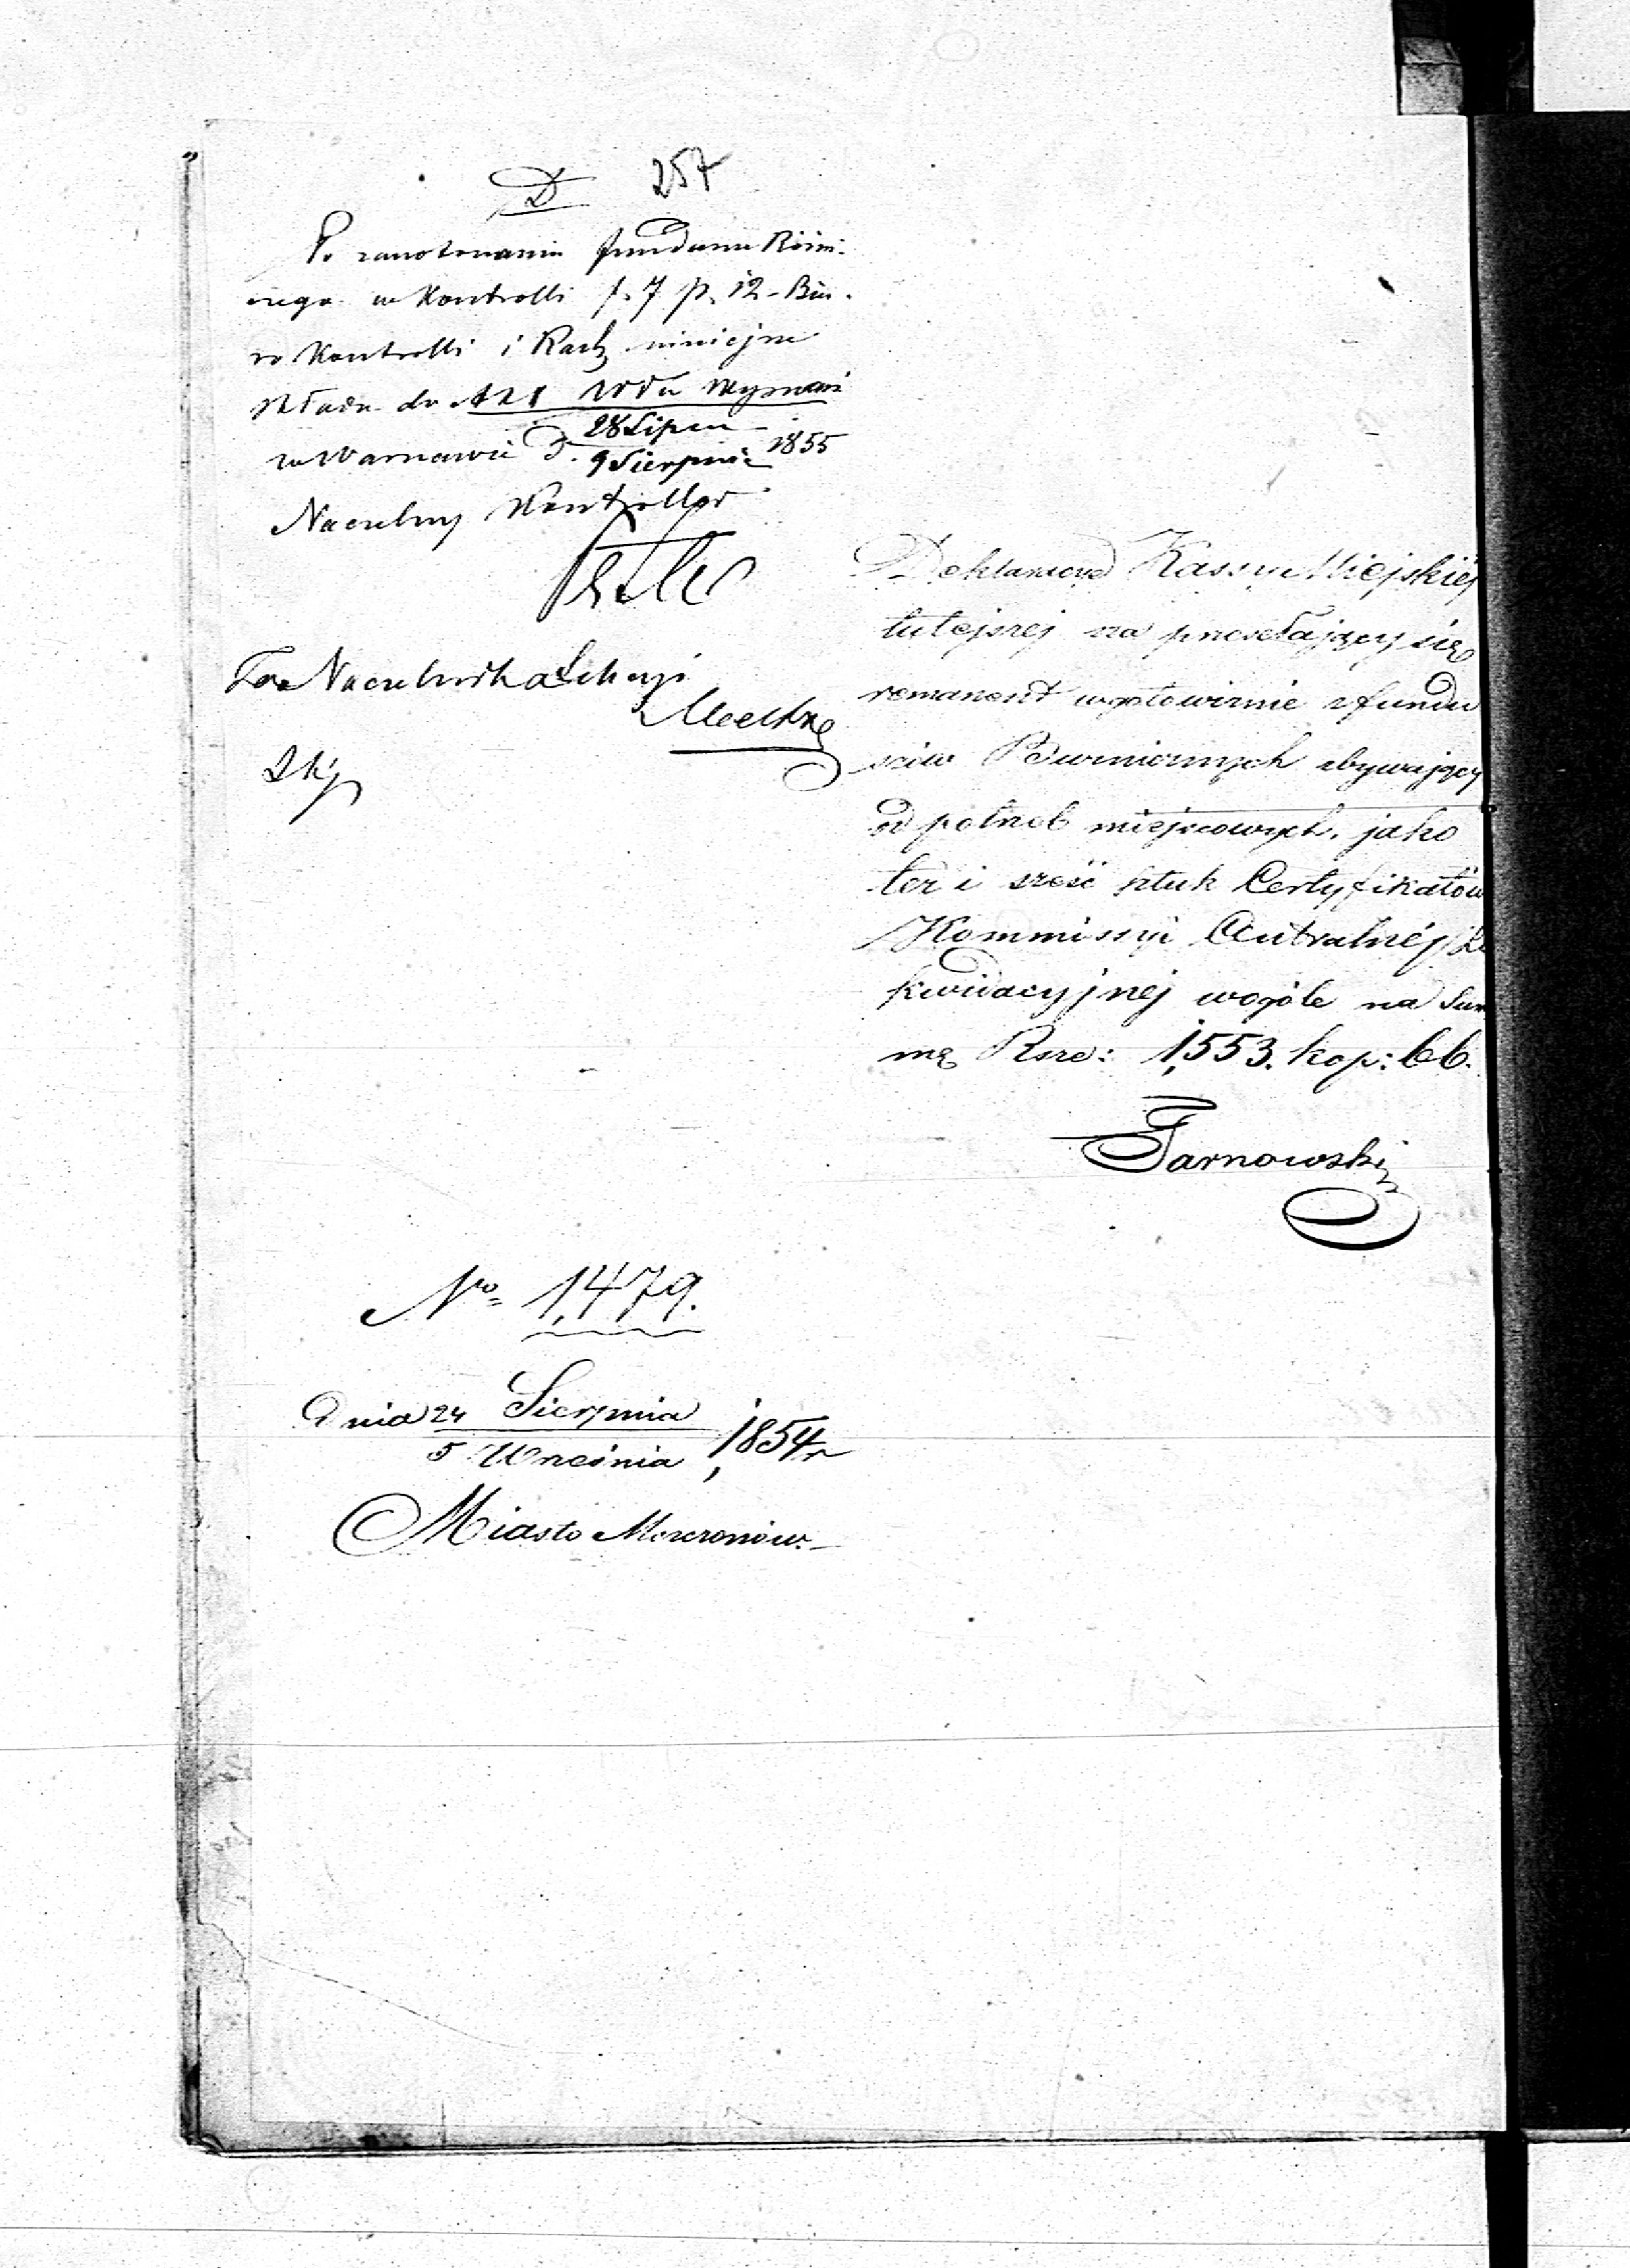 D 257
Po zanotowaniu funduszu Różni-
czego w Kontrolli f. 7 p. 12 - Biu-
ro Kontrolli i Rach niniejsze
składa do Akt
w Warszawie d. 28 Lipca
9 Sierpnia 1855
Naczelny Kontroller
Za Naczelnika Sekcyi
Deklaracya Kassy Miejskiéj
tutejszej na przesełający się
remanent w gotowiznie z fundu
szów zbywający
od potrzeb miejscowych, jako
też i sześć sztuk Certyfikatów
Kommissyi Centralnéj Li
kwidacyjnej wogóle na Sum
mę Rsre: 1,553. kop: 66.
Tarnowski
No 1,479.
Dnia 24 Sierpnia
5 Września 1854 r
Miasto Mszczonów.